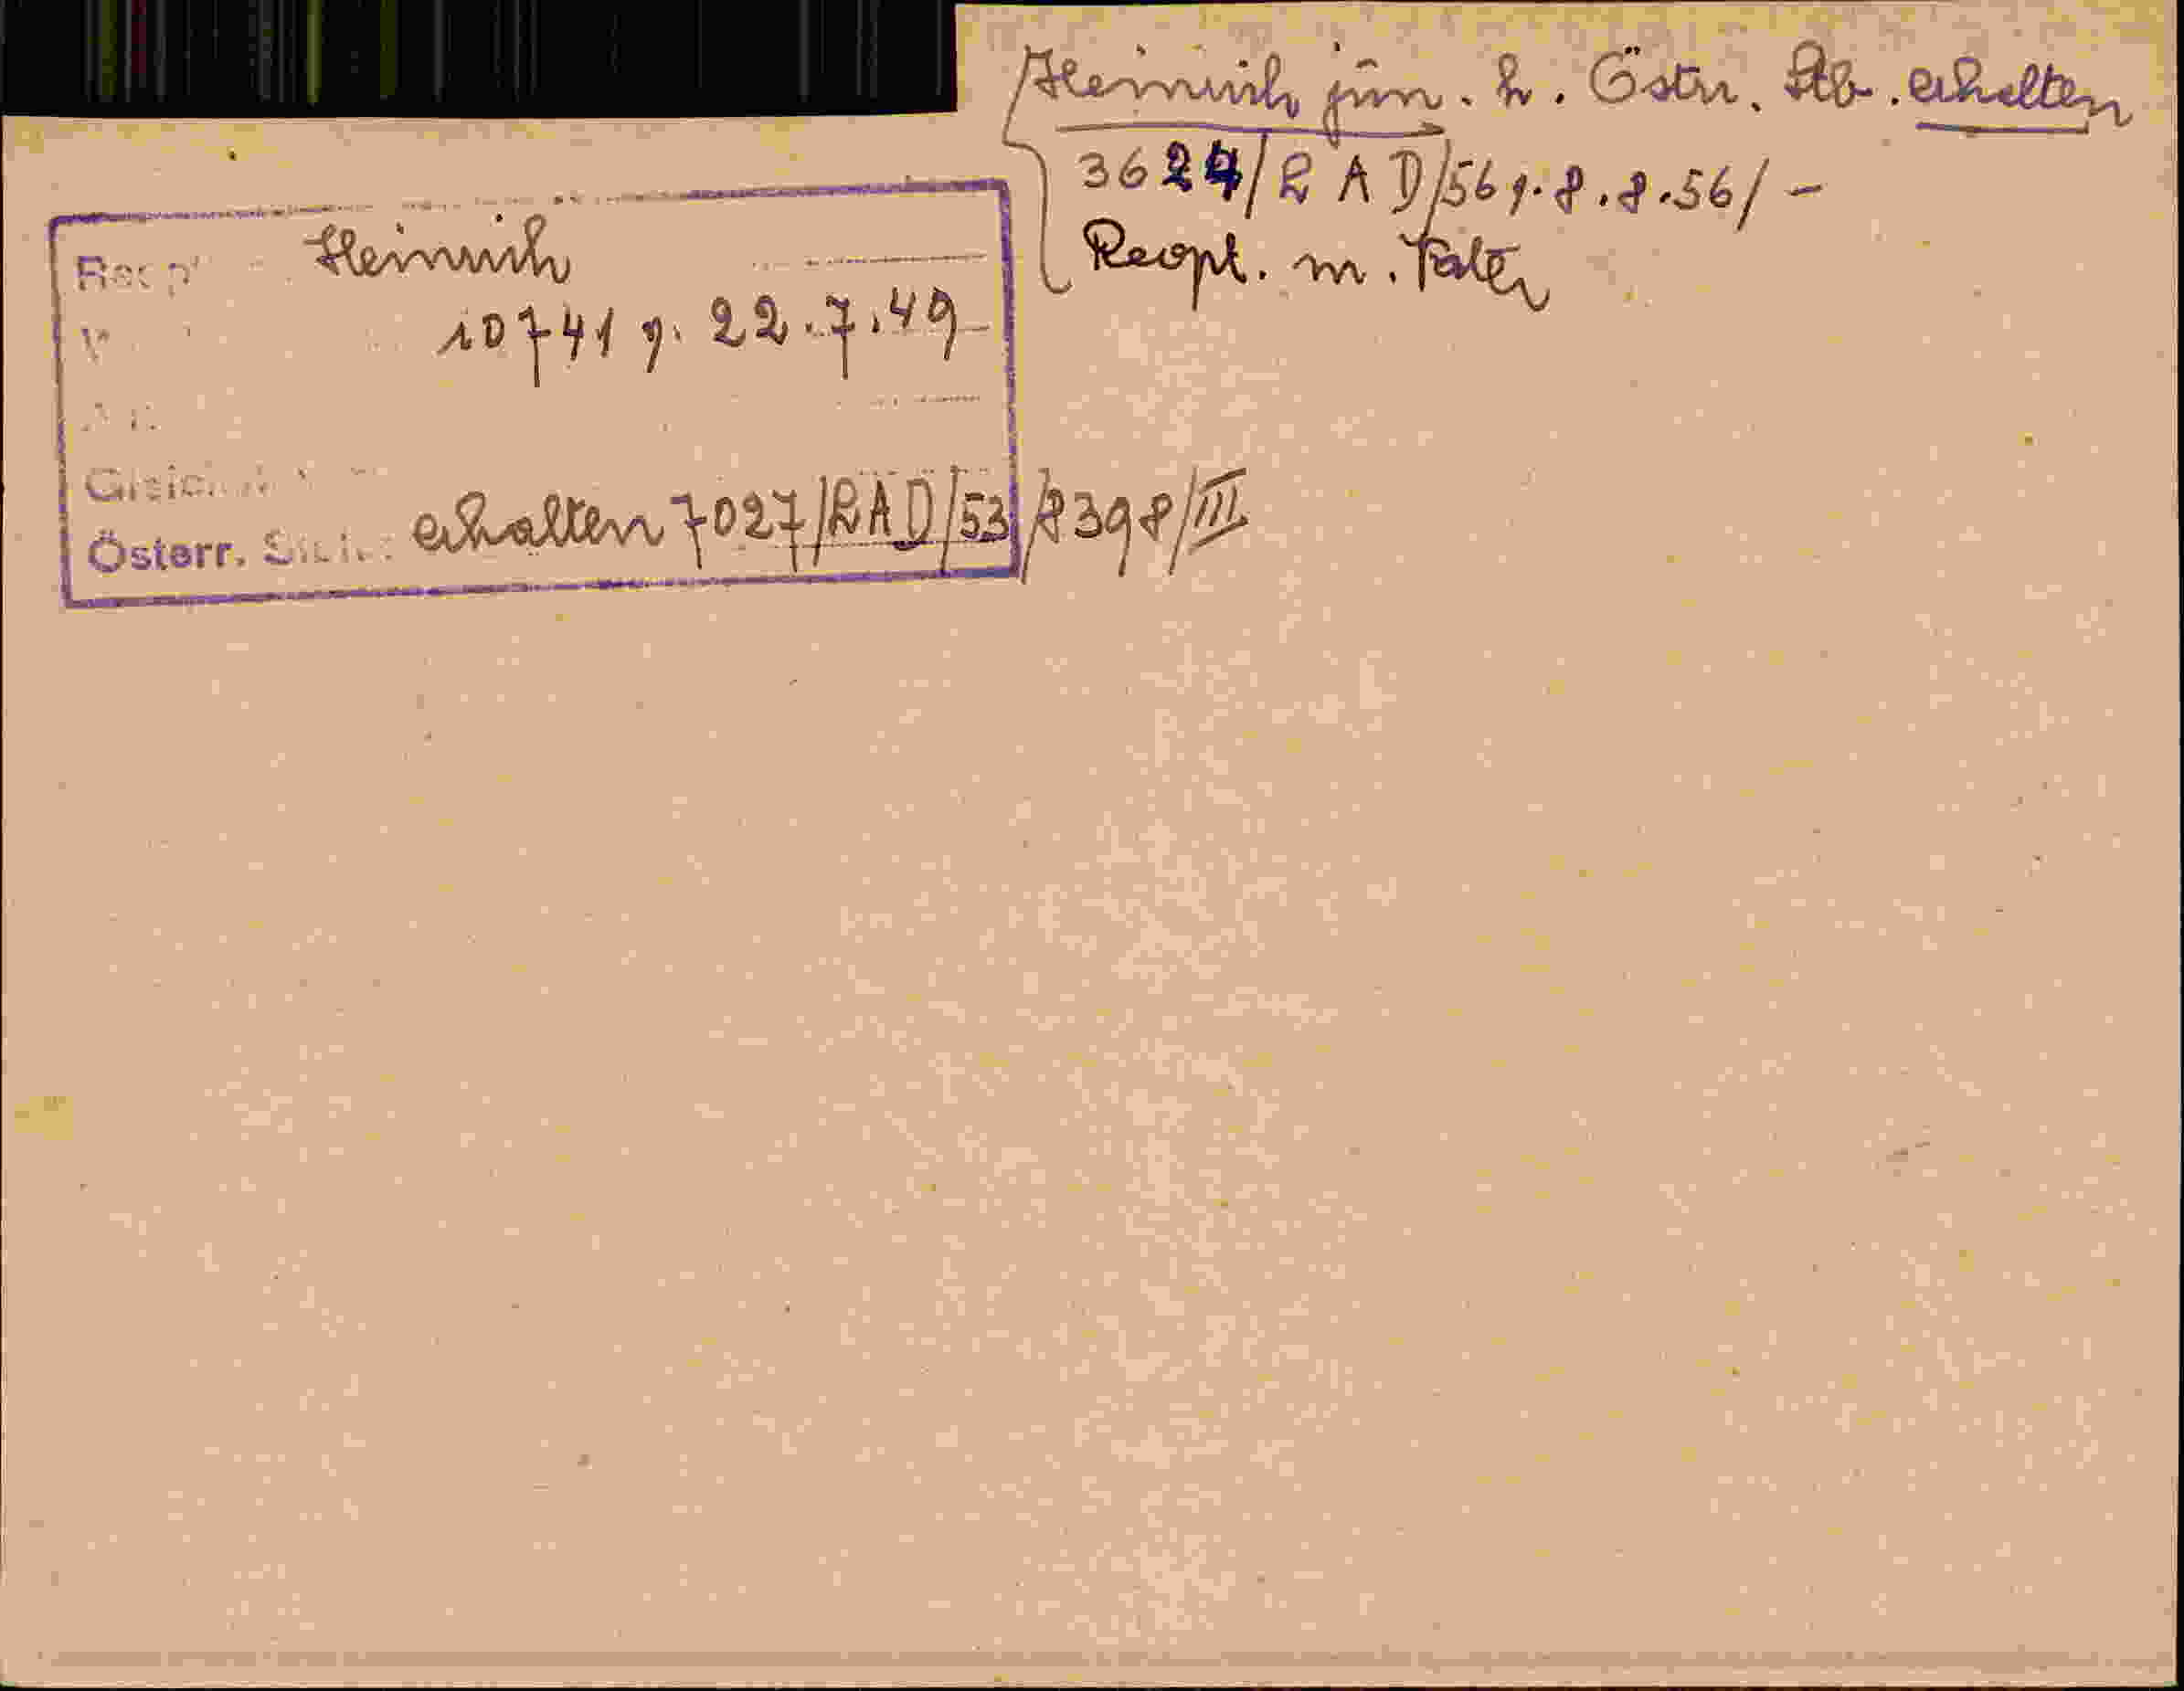 Heinrich jun. h. Östr. Stb. erhalten
3624/RAD/56 v. 8.8.56/-
Reopt. m. Vater
Heinrich
10741 v. 22.7.49
Österr. erhalten 7027/RAD/53/8398/III